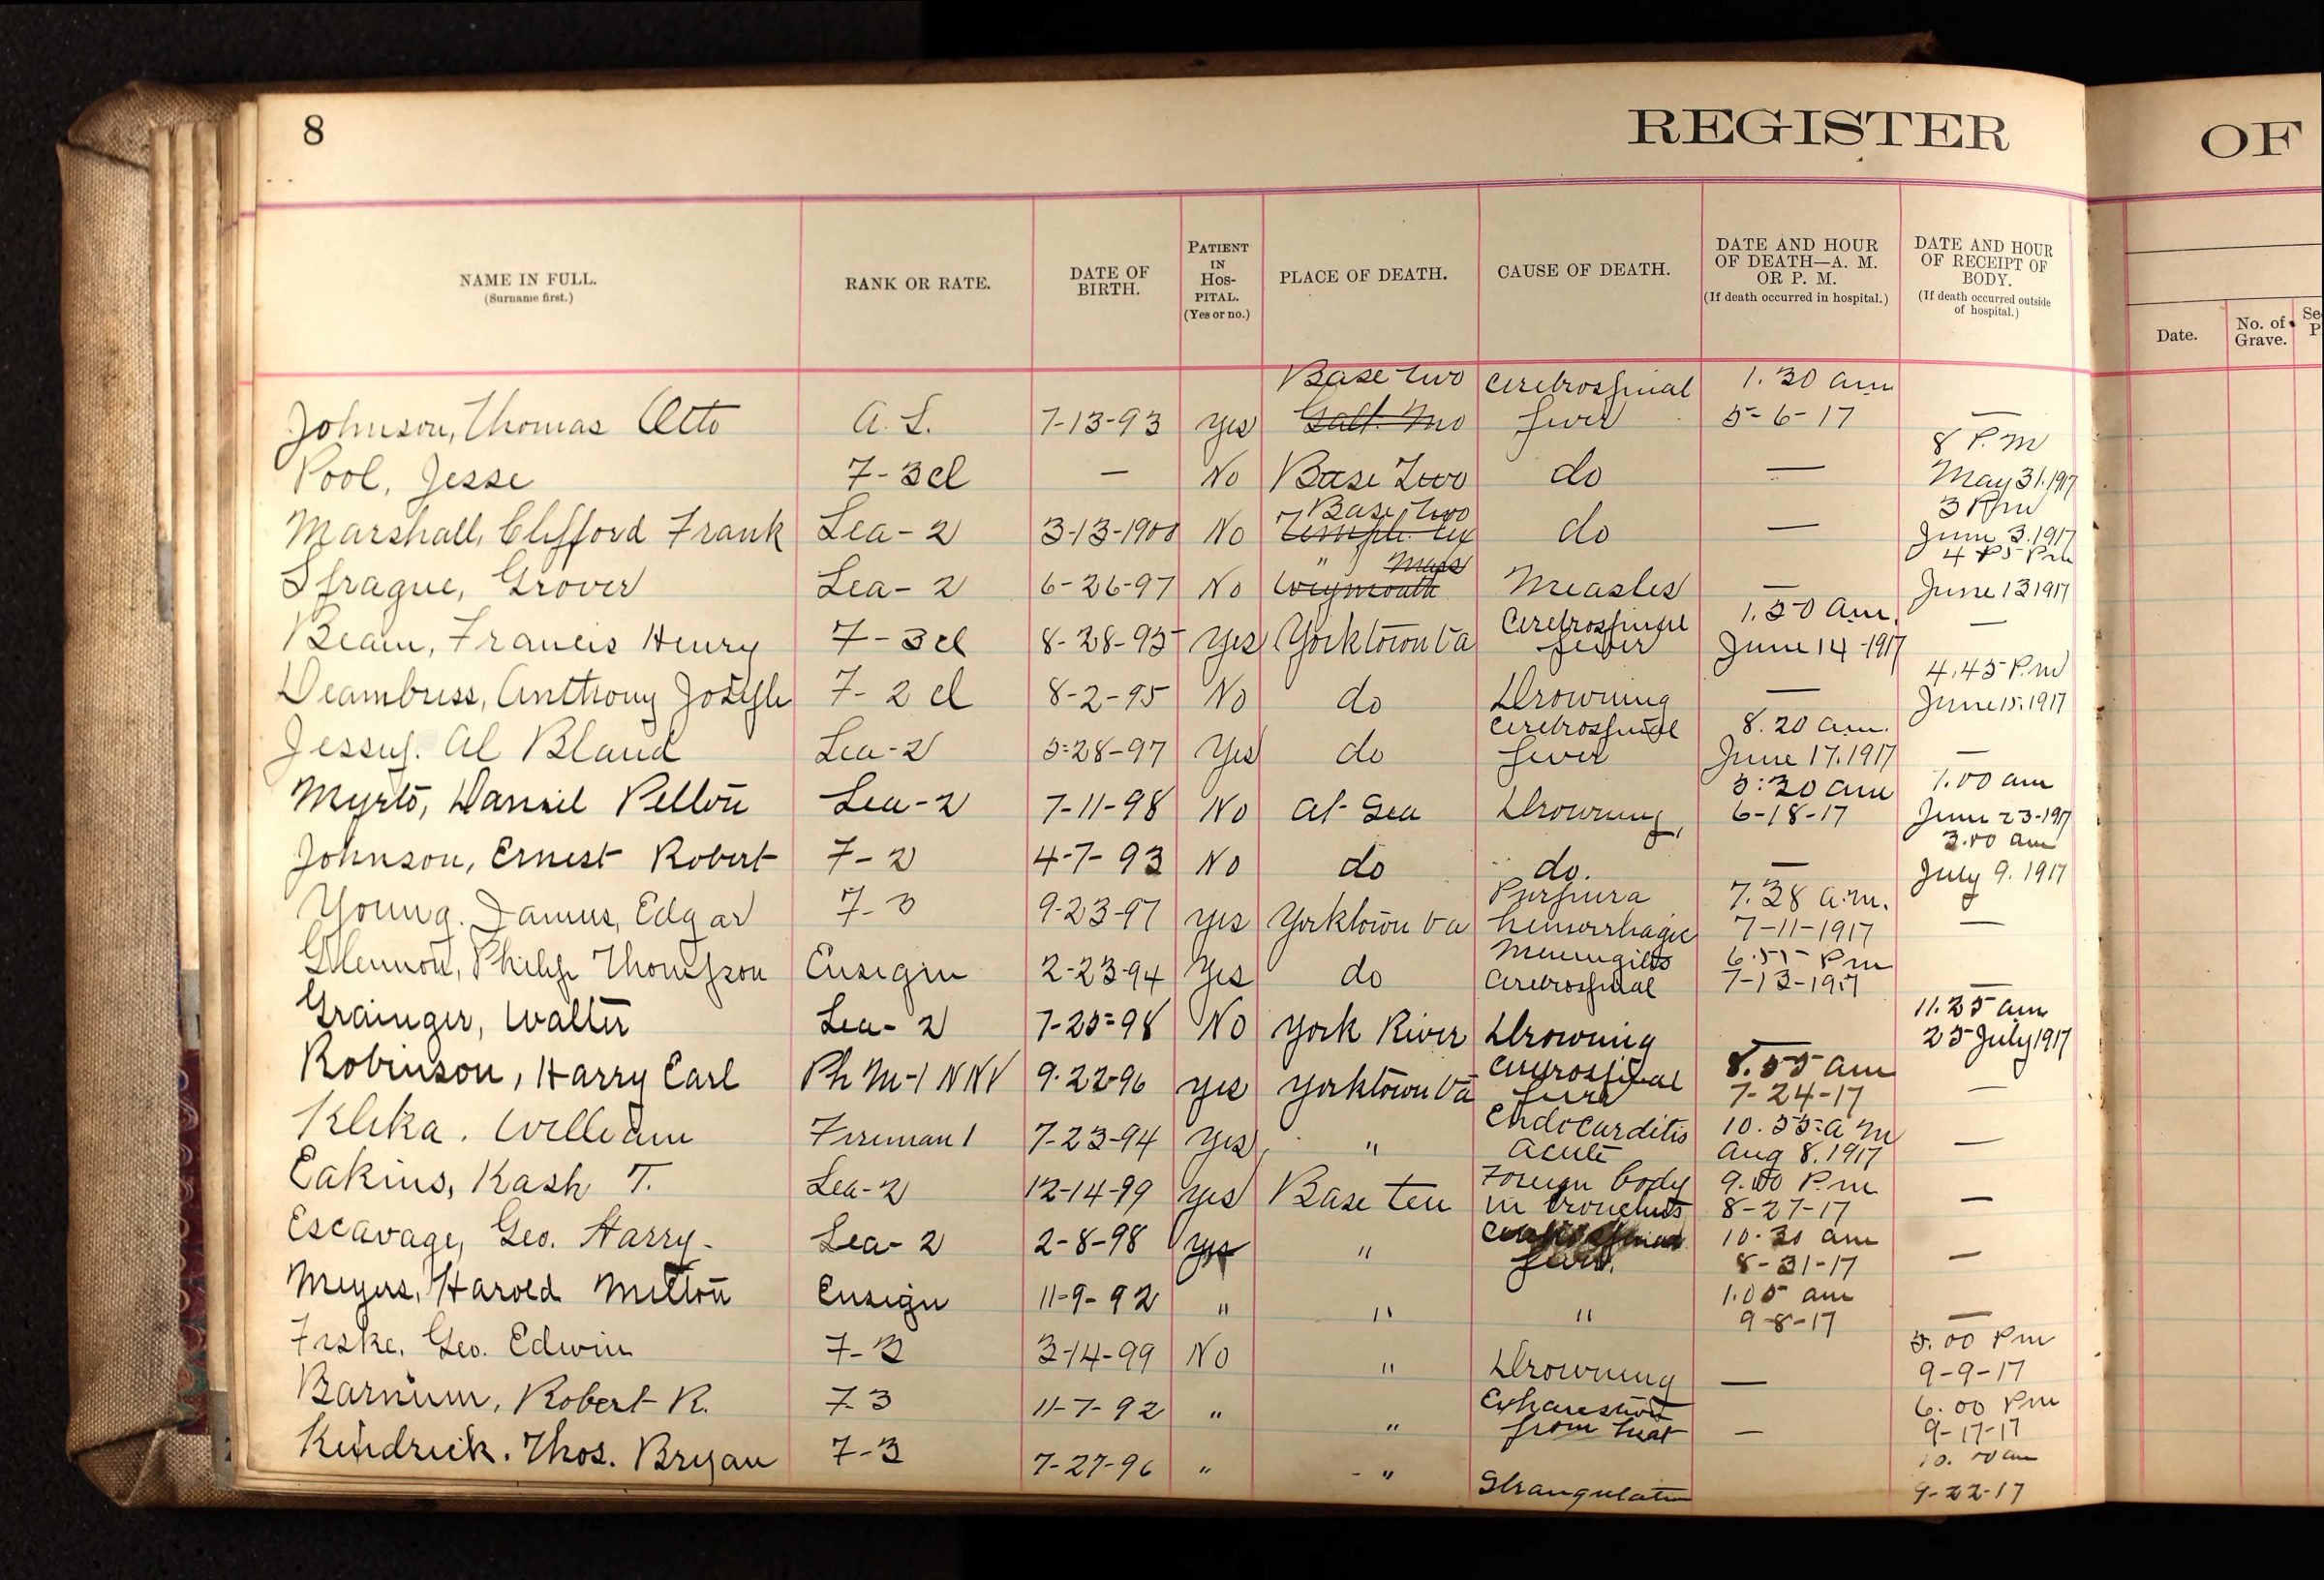 8
REGISTER
OF
NAME IN FULL.
(Surname first.)
RANK OR RATE.
DATE OF BIRTH.
PATIENT IN HOS-PITAL.
(Yes or no.)
PLACE OF DEATH.
CAUSE OF DEATH.
DATE AND HOUR OF DEATH—A. M. OR P. M.
(If death occurred in hospital.)
DATE AND HOUR OF RECEIPT OF BODY.
(If death occurred outside of hospital.)
Date.
No. of Grave.
Johnson, Thomas Otto A. S. 7-13-93 Yes Base two Cerebrospinal fever 1.30 am 5-6-17 —
Pool, Jesse F-3cl — No Base Two do — 8 P.m May 31.1917
Marshall, Clifford Frank Sea-2 3-13-1900 No Base two do — 3 Pm June 3.1917
Sprague, Grover Sea-2 6-26-97 No " Weymouth Mass Measles — Pm June 13 1917
Beam, Francis Henry F-3cl 8-28-95 Yes Yorktown Va Cerebrospinal fever 1.50 am. June 14-1917 —
Deambriss, Anthony Joseph F-2cl 8-2-95 No do Drowning — 4.45 P.m June 15.1917
Jessup. Al Bland Sea-2 5-28-97 Yes do Cerebrospinal fever 8.20 am. June 17.1917 —
Myrto, Daniel Pelton Sea-2 7-11-98 No at Sea Drowning, 5:30 am 6-18-17 1.00 am June 23-1917
Johnson, Ernest Robert F-2 4-7-93 No do do. — 3.00 am July 9. 1917
Young. James, Edgar F-3 9-23-97 yes Yorktown Va Purpura hemorrhagic 7.38 a.m. 7-11-1917 —
Glennon, Philip Thompson Ensign 2-23-94 Yes do Meningitis Cerebrospinal 6.55 Pm 7-13-1917 —
Grainger, Walter Sea-2 7-25-98 No York River Drowning — 11.35 am 25 July 1917
Robinson, Harry Earl Ph M-1 NNV 9-22-96 yes Yorktown Va Cerebrospinal fever 8.55 am 7-24-17 —
Klika. William Fireman 1 7-23-94 Yes " Endocarditis Acute 10.55 a m Aug 8.1917 —
Eakins, Kash T. Sea-2 12-14-99 yes Base ten Foreign body in bronchus 9.00 P.m 8-27-17 —
Escavage, Geo. Harry. Sea-2 2-8-98 yes " Cerebrospinal fever. 10.30 am 8-31-17 —
Meyers, Harold Milton Ensign 11-9-92 " " " 1.05 am 9-8-17 —
Fiske, Geo. Edwin F-3 3-14-99 No " Drowning — 5.00 Pm 9-9-17
Barnum, Robert R. F-3 11-7-92 " " Exhaustion from heat — 6.00 Pm 9-17-17
Kendrick. Thos. Bryan F-3 7-27-96 " " Strangulation 9-22-17